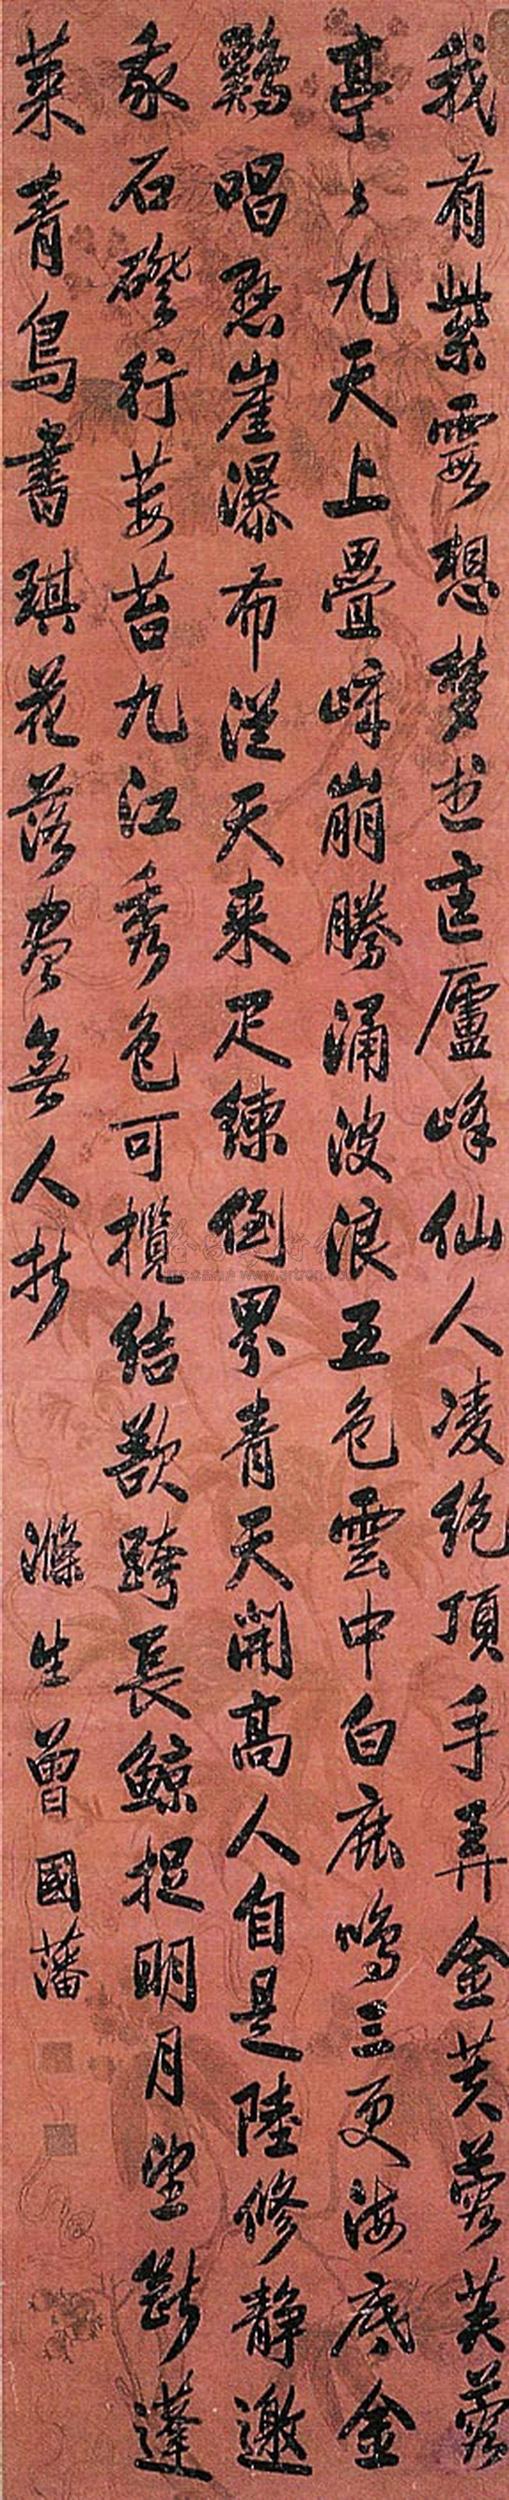 我有紫霞想夢也匡廬峰仙人凌絕頂手弄金芙蓉芙蓉
亭〻九天上疊嶂崩騰涌波浪五色雲中白鹿鳴三更海底金
鷄唱懸崖瀑布從天來疋練倒界青天開高人自是陸修靜邀
我石磴行莓苔九江秀色可攬結欲跨長鯨捉明月望斷蓬
萊青鳥書琪花落盡無人折
滌生曾國藩